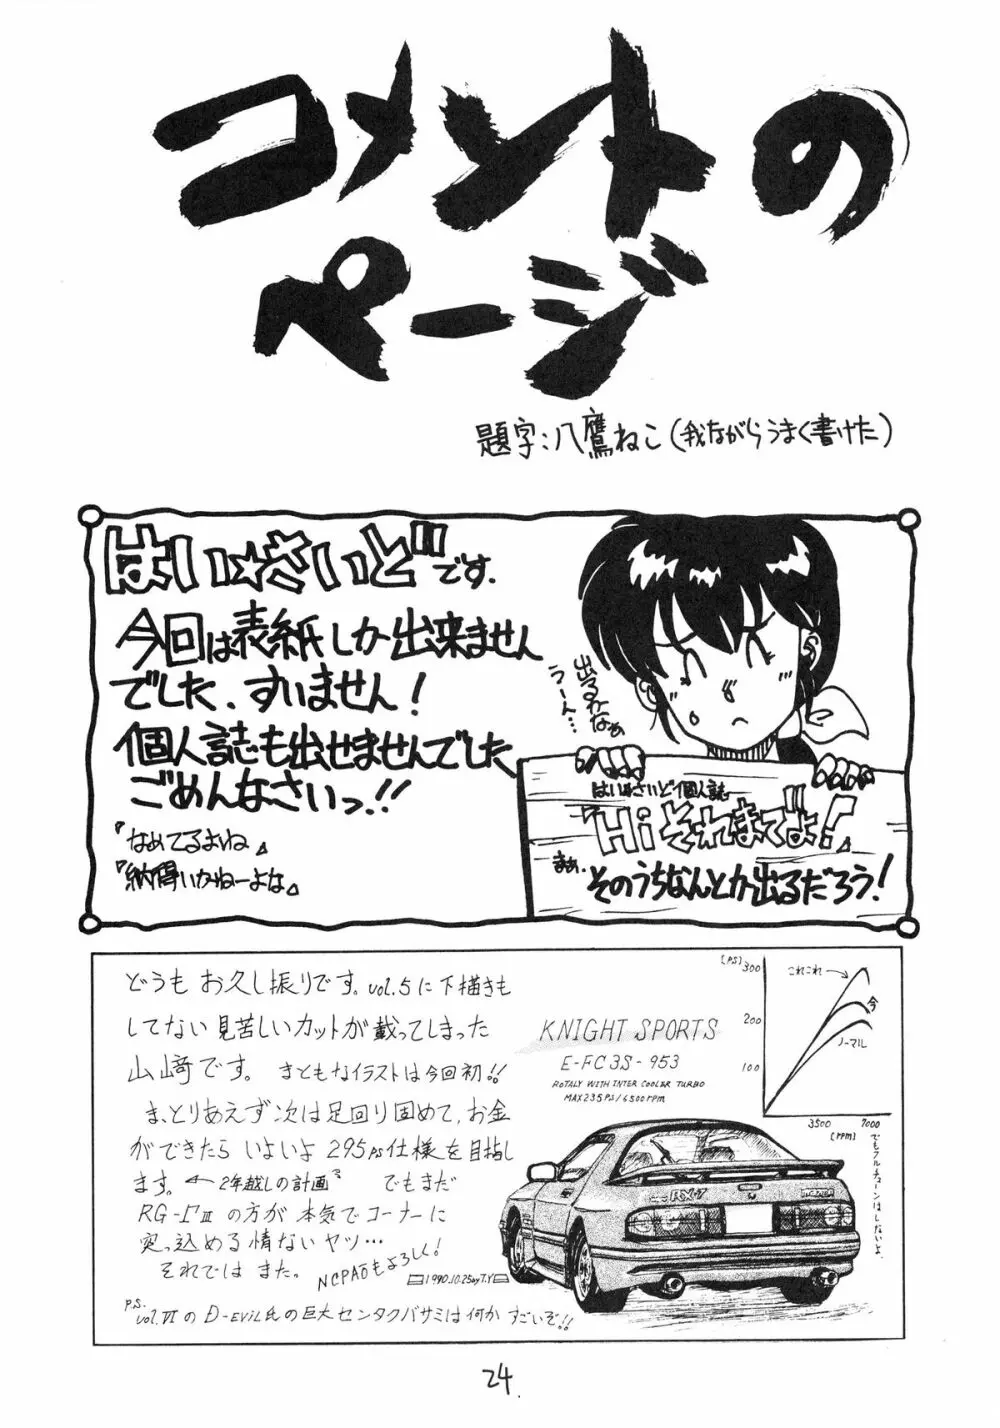 コメントの
ページ
題字:八鷹ねこ(我ながらうまく書けた)
はい☆さいどです.
今回は表紙しか出来ません
でした、すいません!
個人誌も出せませんでした
ごめんなさいっ!!
『なめてるよね』
『納得いかねーよな』
出るかなぁ
うーん…
はい☆さいど個人誌
『Hiそれまでよ!』
まぁ、
そのうちなんとか出るだろう!
どうもお久し振りです。vol.5に下描きも
してない見苦しいカットが載ってしまった
山﨑です。まともなイラストは今回初!!
ま、とりあえず次は足回り固めて、お金
ができたらいよいよ295PS仕様を目指し
ます。←2年越しの計画 でもまだ
RG-ΓⅢの方が本気でコーナーに
突っ込める情ないヤツ…
それではまた。
NCPAOもよろしく!
1990.10.25 by T.Y
P.S.
vol.VIのD-EVIL氏の巨大センタクバサミは何かすごいぞ!!
KNIGHT SPORTS
E-FC3S-953
ROTALY WITH INTER COOLER TURBO
MAX235PS/6500rpm
[PS]
300
200
100
これこれ
今
ノーマル
3500 7000
[rpm]
でもフルチューンはしないよ.
RX-7
24.